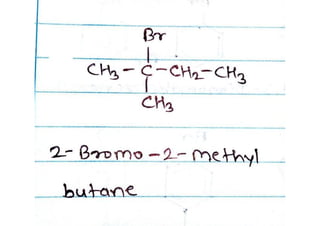 Br
CH3-C-CH2-CH3
CH3
2-Bromo-2-methyl
butane